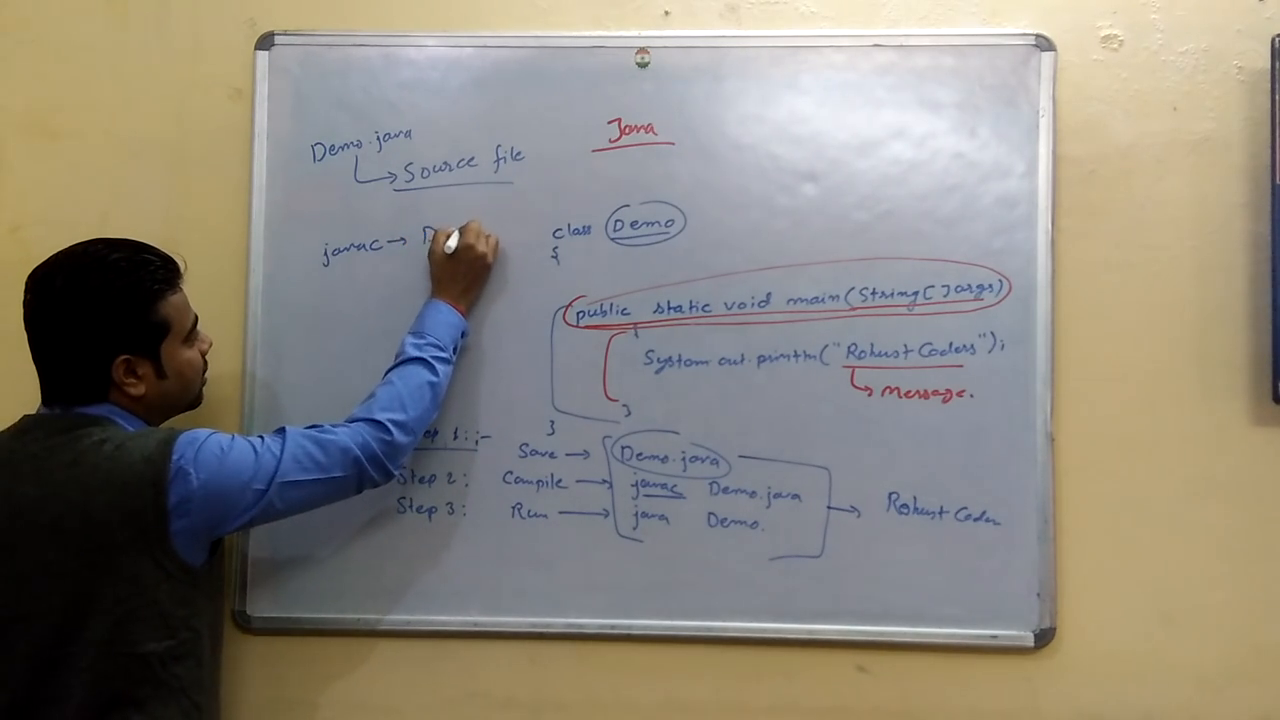 Java
Demo.java
Source file
javac → D
class Demo
{
public static void main(String[]args)
{
System.out.println("Robust Coders");
message.
}
}
1:;-
Save → Demo.java
Step 2: Compile → javac Demo.java
Step 3: Run → java Demo.
→ Robust Coder